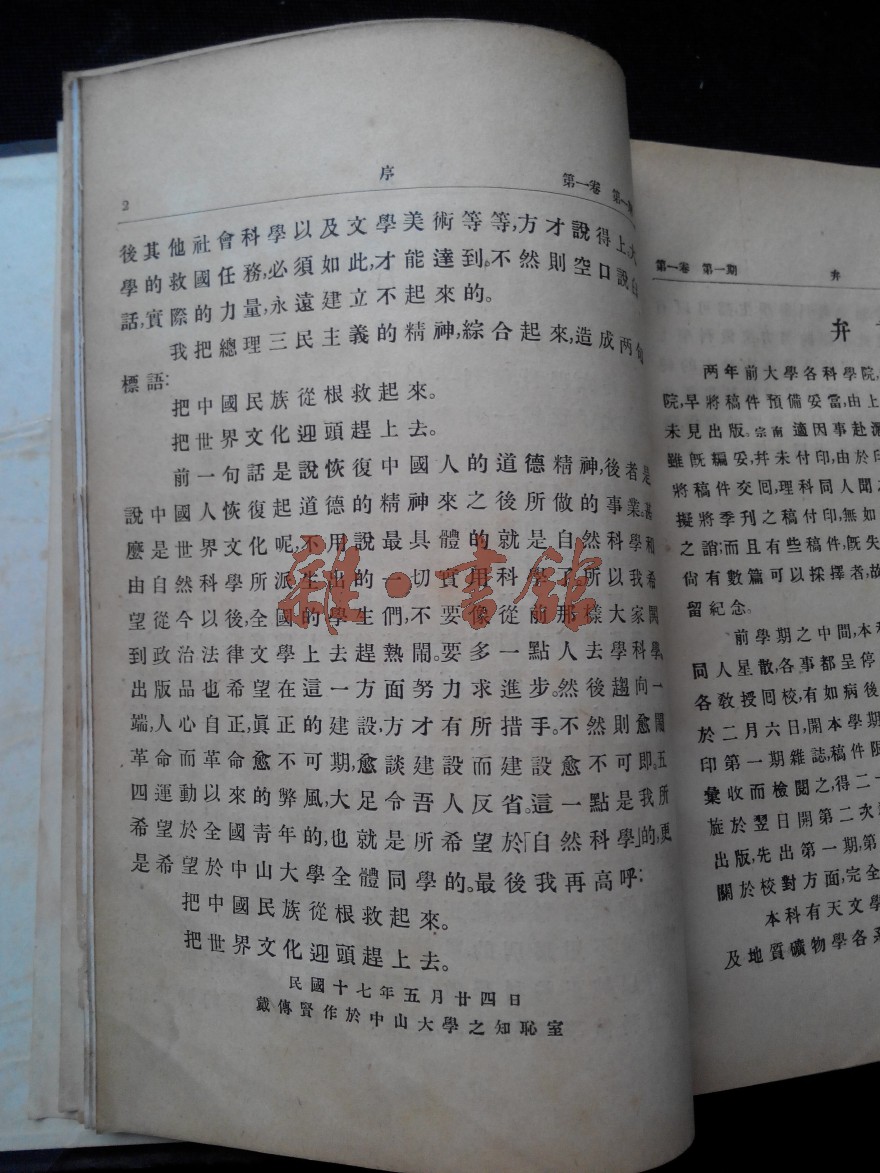 2
序
第一卷 第一期
後其他社會科學以及文學美術等等,方才說得上.大
學的救國任務,必須如此,才能達到。不然則空口說白
話,實際的力量,永遠建立不起來的。
我把總理三民主義的精神,綜合起來,造成两句
標語:
把中國民族從根救起來。
把世界文化迎頭趕上去。
前一句話是說恢復中國人的道德精神,後者是
說中國人恢復起道德的精神來之後所做的事業。甚
麼是世界文化呢,不用說最具體的就是自然科學和
由自然科學所派生出的一切實用科學了。所以我希
望從今以後,全國的學生們,不要像從前那樣大家鬧
到政治法律文學上去趕熱鬧。要多一點人去學科學,
出版品也希望在這一方面努力求進步。然後趨向一
端,人心自正,眞正的建設,方才有所措手。不然則愈鬧
革命而革命愈不可期,愈談建設而建設愈不可即。五
四運動以來的弊風,大足令吾人反省。這一點是我所
希望於全國青年的,也就是所希望於「自然科學」的,更
是希望於中山大學全體同學的。最後我再高呼:
把中國民族從根救起來。
把世界文化迎頭趕上去。
民國十七年五月廿四日
戴傳賢作於中山大學之知恥室
雜·書館
第一卷 第一期
弁
弁
两年前大學各科學院,
院,早將稿件預備妥當,由上
未見出版。宗南適因事赴滬
雖旣編妥,幷未付印,由於印
將稿件交囘,理科同人聞之
擬將季刊之稿付印,無如
之誚;而且有些稿件,旣失
尙有數篇可以採擇者,故
留紀念。
前學期之中間,本科
同人星散,各事都呈停
各敎授囘校,有如病後
於二月六日,開本學期
印第一期雜誌,稿件限
彙收而檢閱之,得二十
旋於翌日開第二次
出版,先出第一期,第
關於校對方面,完全
本科有天文學
及地質礦物學各系